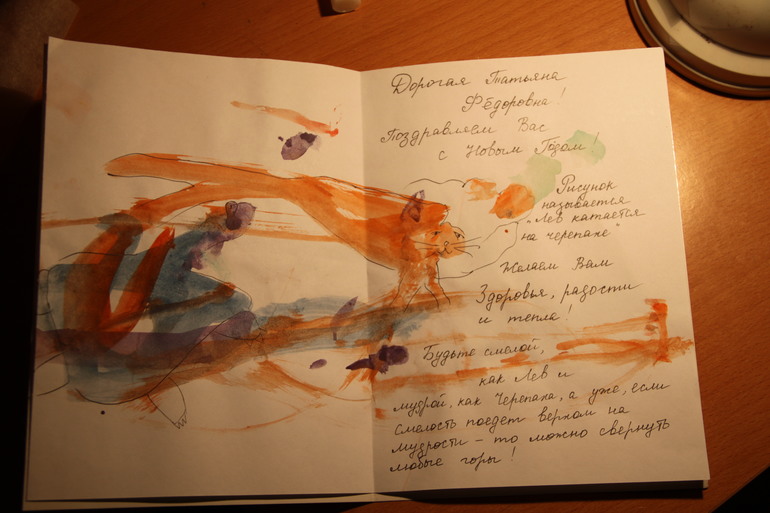 Дорогая Татьяна
Фёдоровна!
Поздравляем Вас
с Новым Годом!
Рисунок
называется
"Лев катается
на черепахе"
Желаем Вам
Здоровья, радости
и тепла!
Будьте смелой,
как Лев и
мудрой, как Черепаха, а уже, если
смелость поедет верхом на
мудрости – то можно свернуть
любые горы!